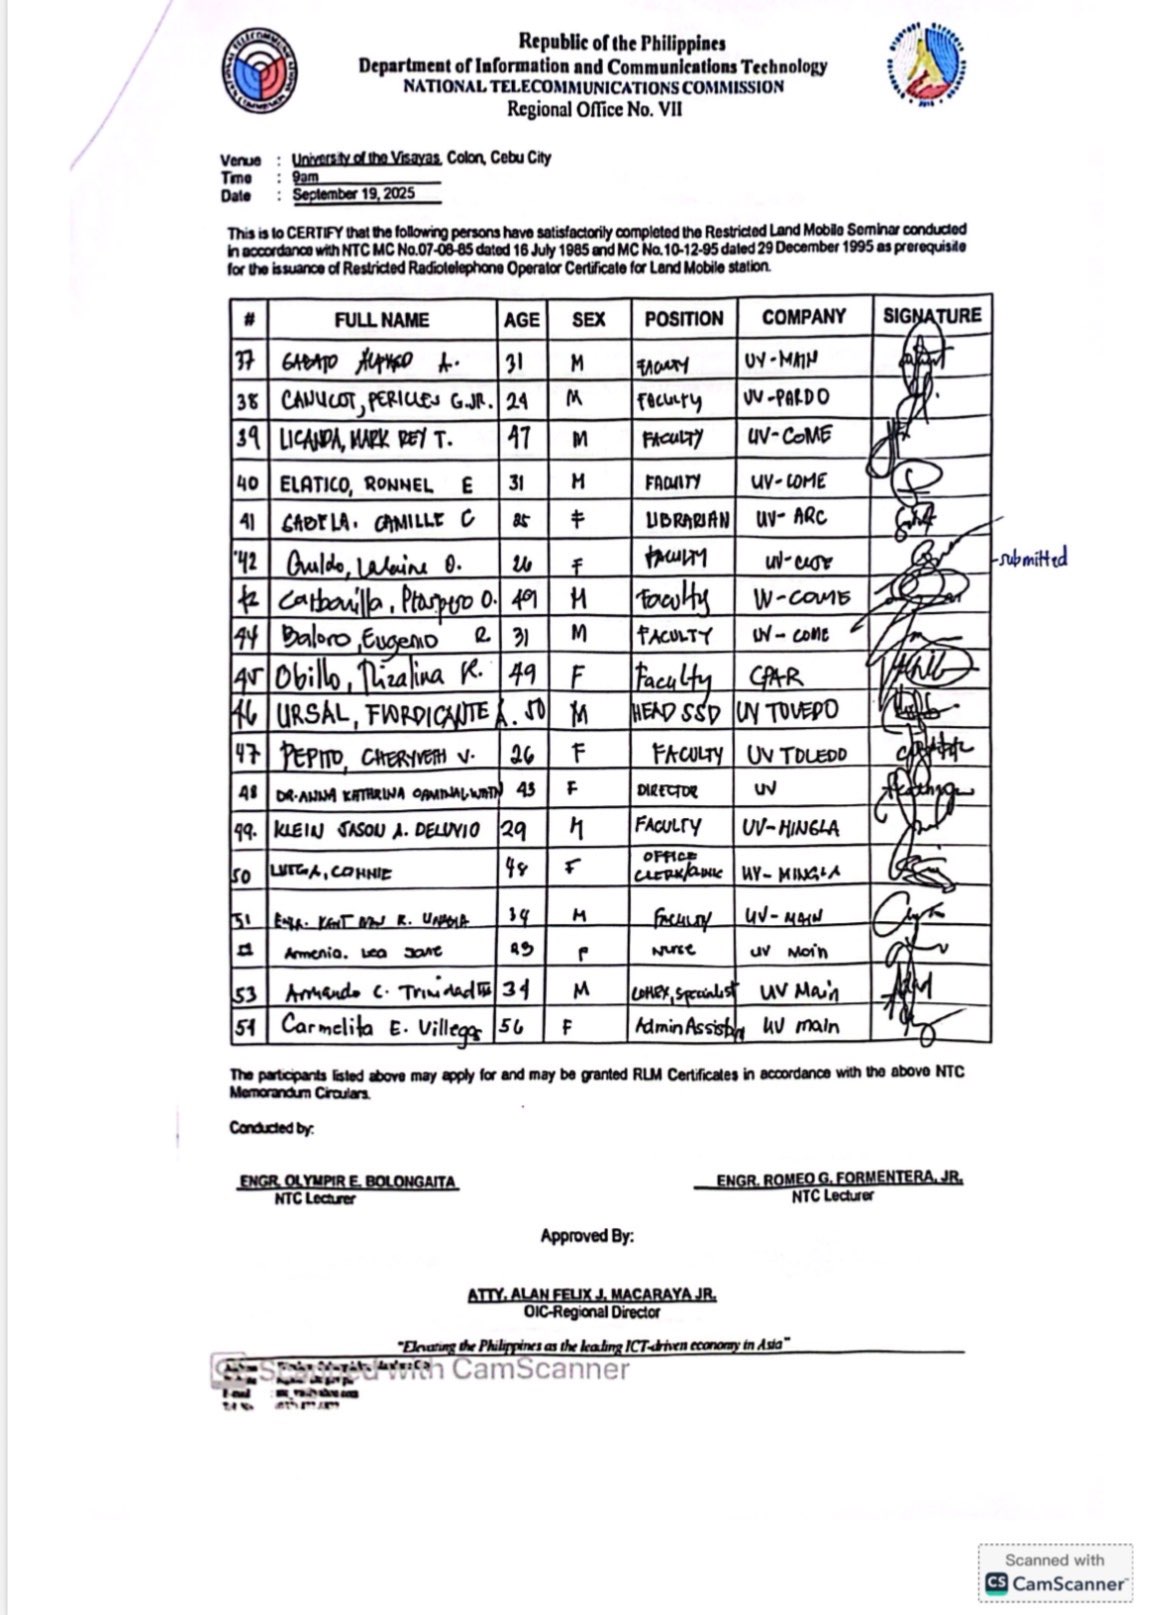 Republic of the Philippines
Department of Information and Communications Technology
NATIONAL TELECOMMUNICATIONS COMMISSION
Regional Office No. VII
Venue : University of the Visayas, Colon, Cebu City
Time : 9am
Date : September 19, 2025
This is to CERTIFY that the following persons have satisfactorily completed the Restricted Land Mobile Seminar conducted
in accordance with NTC MC No.07-08-85 dated 16 July 1985 and MC No.10-12-95 dated 29 December 1995 as prerequisite
for the issuance of Restricted Radiotelephone Operator Certificate for Land Mobile station.
# FULL NAME AGE SEX POSITION COMPANY SIGNATURE
37 GABATO A. 31 M FACULTY UV-MAIN
38 CANUCOT, PERICLES G.JR. 29 M FACULTY UV-PARDO
39 LICANDA, MARK REY T. 47 M FACULTY UV-COME
40 ELATICO, RONNEL E 31 M FACULTY UV-COME
41 CAMILLE C F LIBRARIAN UV- ARC
42 O. 26 F FACULTY
submitted
Carbonilla, Prospero O. 49 M Faculty UV-COME
44 Baloro, Eugenio R. 31 M FACULTY UV-COME
45 Obillo, Rizalina R. 49 F Faculty
46 URSAL, FIORDICANTE A. 50 M HEAD SSD UV TOLEDO
47 PEPITO, CHERYVETH V. 26 F FACULTY UV TOLEDO
48 DR. ANNA KATHRINA 43 F DIRECTOR UV
49. KLEIN JASON A. DELUVIO 29 M FACULTY UV-MINGLA
50 CONNIE 48 F OFFICE CLERK UV-MINGLA
51 ENGR. KENT R. 34 M FACULTY UV-MAIN
Armenia. Lea Jane F Nurse UV Main
53 Armando C. Trinidad III 34 M Specialist UV Main
54 Carmelita E. Villegas 56 F Admin Assistant UV main
The participants listed above may apply for and may be granted RLM Certificates in accordance with the above NTC
Memorandum Circulars.
Conducted by:
ENGR. OLYMPIR E. BOLONGAITA
NTC Lecturer
ENGR. ROMEO G. FORMENTERA, JR.
NTC Lecturer
Approved By:
ATTY. ALAN FELIX J. MACARAYA JR.
OIC-Regional Director
"Elevating the Philippines as the leading ICT-driven economy in Asia"
CS Scanned with CamScanner
Scanned with
CS CamScanner